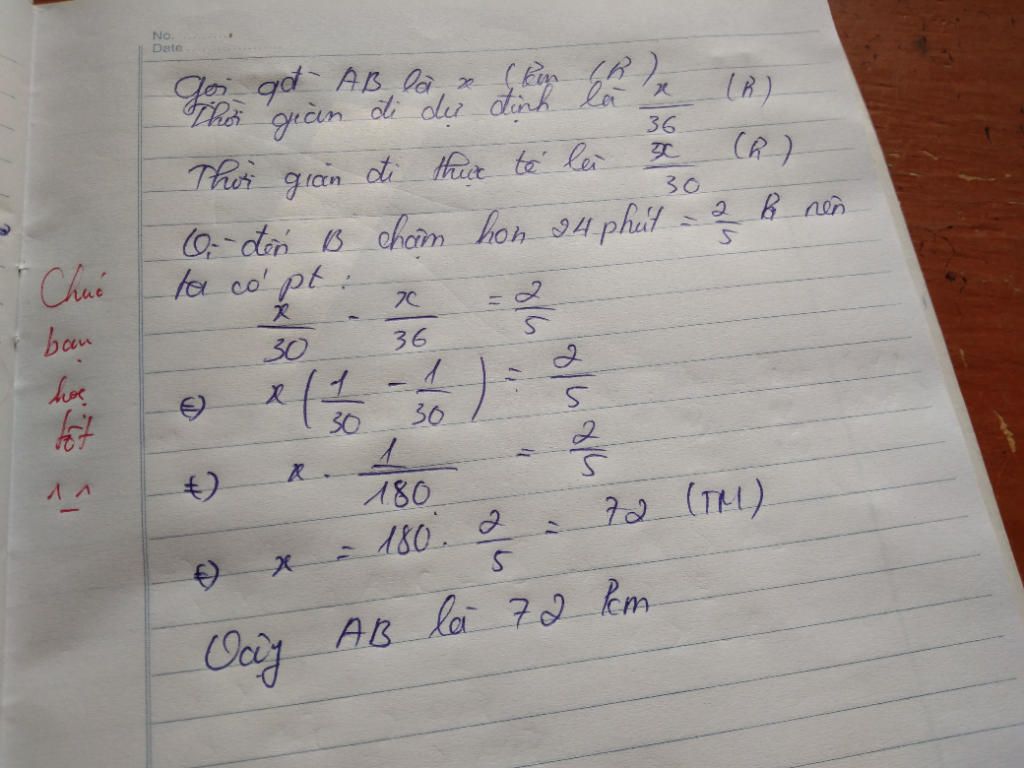 No.
Date
Gọi qđ AB là x (km (h)
Thời gian đi dự định là x/36 (h)
Thời gian đi thực tế là x/30 (h)
Vì đến B chậm hơn 24 phút = 2/5 h nên
ta có pt :
x/30 - x/36 = 2/5
<=> x(1/30 - 1/30) = 2/5
<=> x . 1/180 = 2/5
<=> x = 180 . 2/5 = 72 (TM)
Vậy AB là 72 km
Chúc
bạn
học
tốt
^_^